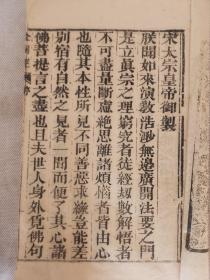 宋太宗皇帝御製
朕聞如來演教浩渺無邊廣開法要之門
是立真宗之理窮究者徒經劫數解悟者
不可盡量斷慮絕思離諸煩惱者皆由心
也隨其本性所見不同善惡求緣豈能差
別宿有自然之見者一聞而便了其心諸
佛菩提言之盡也且夫世人身外覓佛句